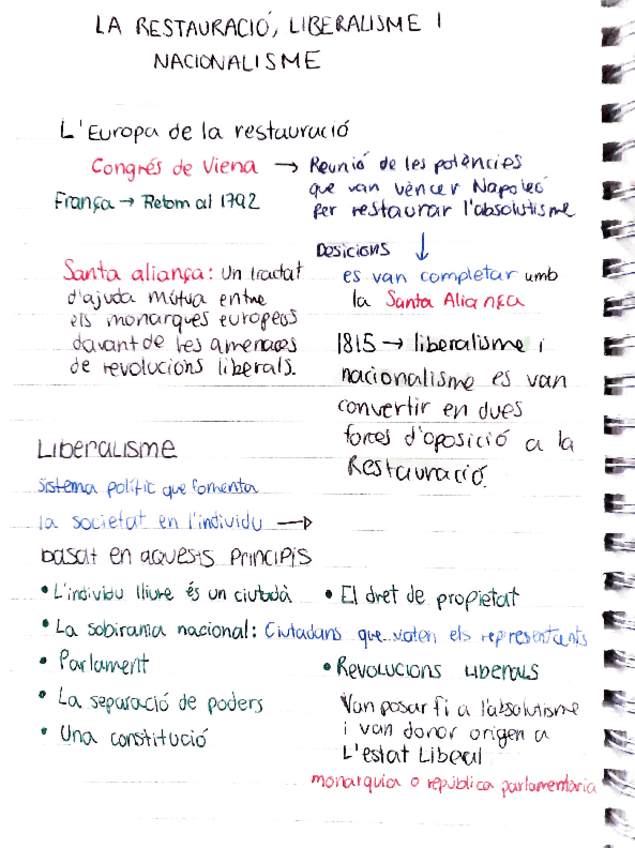 LA RESTAURACIÓ, LIBERALISME I
NACIONALISME
L'Europa de la restauració
Congrés de Viena → Reunió de les potències
que van vèncer Napoleó
per restaurar l'absolutisme
França → Retorn al 1792
Desicions ↓
es van completar amb
la Santa Aliança
Santa aliança: Un tractat
d'ajuda mútua entre
els monarques europeos
davant de les amenaces
de revolucions liberals.
1815 → liberalisme i
nacionalisme es van
convertir en dues
forces d'oposició a la
Restauració.
LIBERALISME
Sistema polític que fomenta
la societat en l'individu →
basat en aquests PRINCIPIS
• L'individu lliure és un ciutadà
• El dret de propietat
• La sobirania nacional: Ciutadans que voten els representants
• Parlament
• La separació de poders
• Una constitució
• Revolucions LIBERALS
Van posar fi a l'absolutisme
i van donar origen a
L'estat Liberal
monarquia o república parlamentària